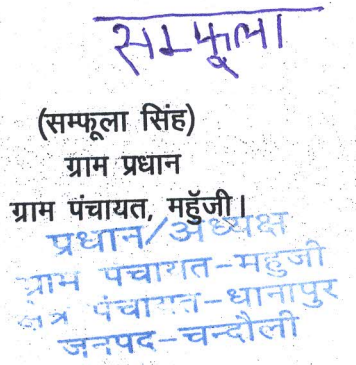 सम्फूला
(सम्फूला सिंह)
ग्राम प्रधान
ग्राम पंचायत, महुँजी।
प्रधान/अध्यक्ष
ग्राम पंचायत-महुजी
क्षेत्र पंचायत-धानापुर
जनपद-चन्दौली